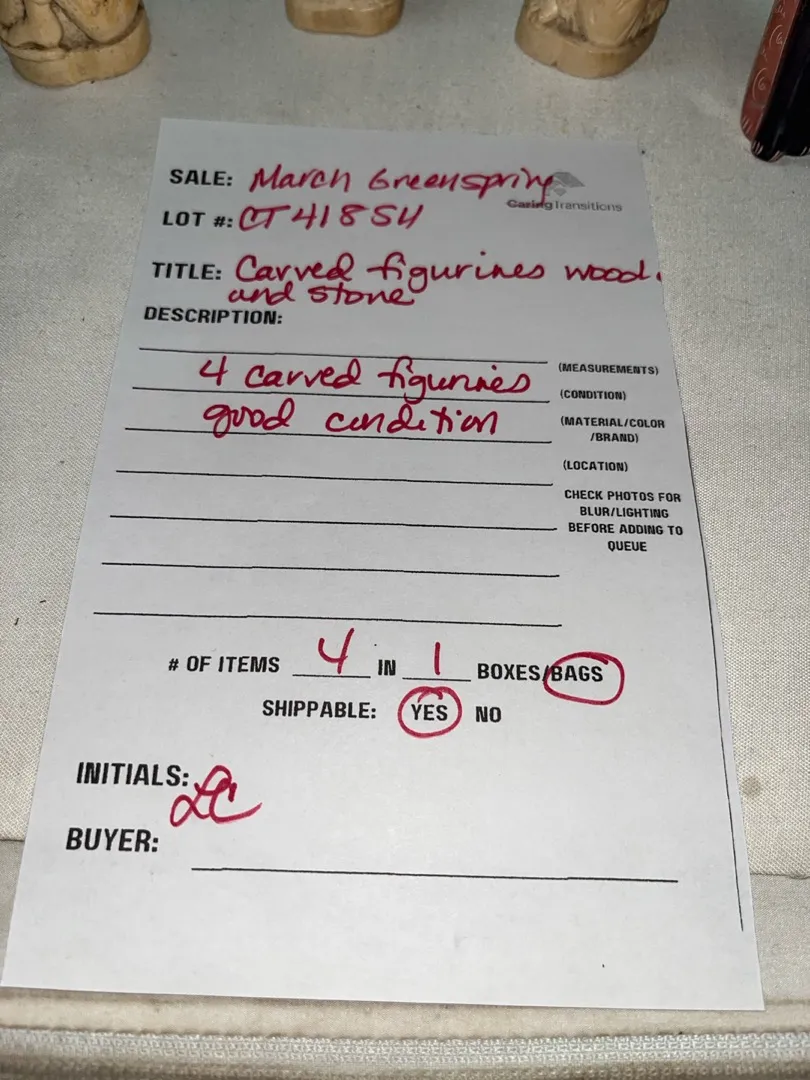 SALE: March Greenspring
Caring Transitions
LOT #: CT41854
TITLE: Carved figurines wood
and stone
DESCRIPTION:
(MEASUREMENTS)
4 carved figurines
(CONDITION)
good condition
(MATERIAL/COLOR
/BRAND)
(LOCATION)
CHECK PHOTOS FOR
BLUR/LIGHTING
BEFORE ADDING TO
QUEUE
# OF ITEMS 4 IN 1 BOXES/BAGS
SHIPPABLE: YES NO
INITIALS: LC
BUYER: